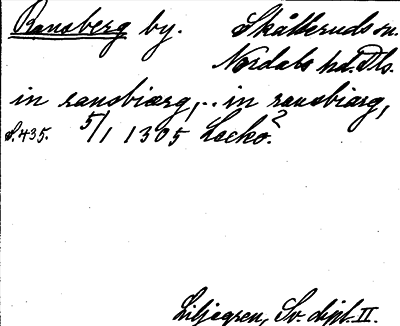 Ransberg by. Skålleruds sn.
Nordals hd. Dls.
in ransbiærg, .. in ransbiærg,
S. 435. 5/1 1305 Lecko.?
Liljegren, Sv. dipl. II.